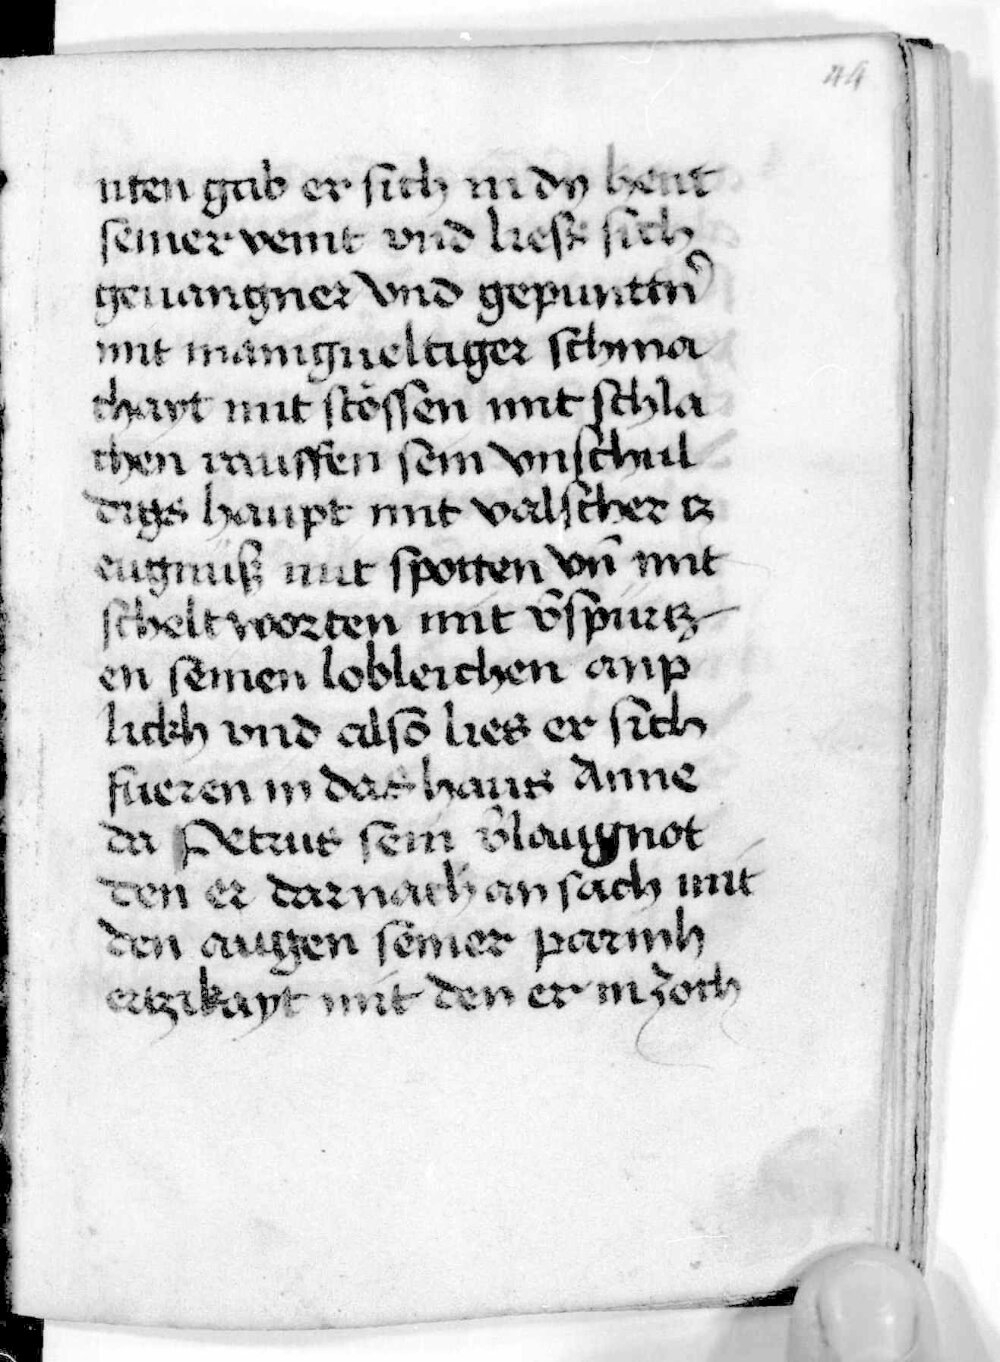 44
nten gab er sich in dy hent
seiner veint vnd liesz sich
geuangner vnd gepunttn̄
mit manigueltiger schma
chayt mit stössen mit schla
chen rauffen sein vnschul
digs haupt mit valscher cz
eugnusz mit spotten vn̄ mit
scheltworten mit v̄spürtz
en seinen lobleichen anp
lickh vnd also lies er sich
fueren in das haus Anne
da Petrus sein v̄laugnot
den er darnach an sach mit
den augen seiner parmh
ertzikayt mit den er in zoch